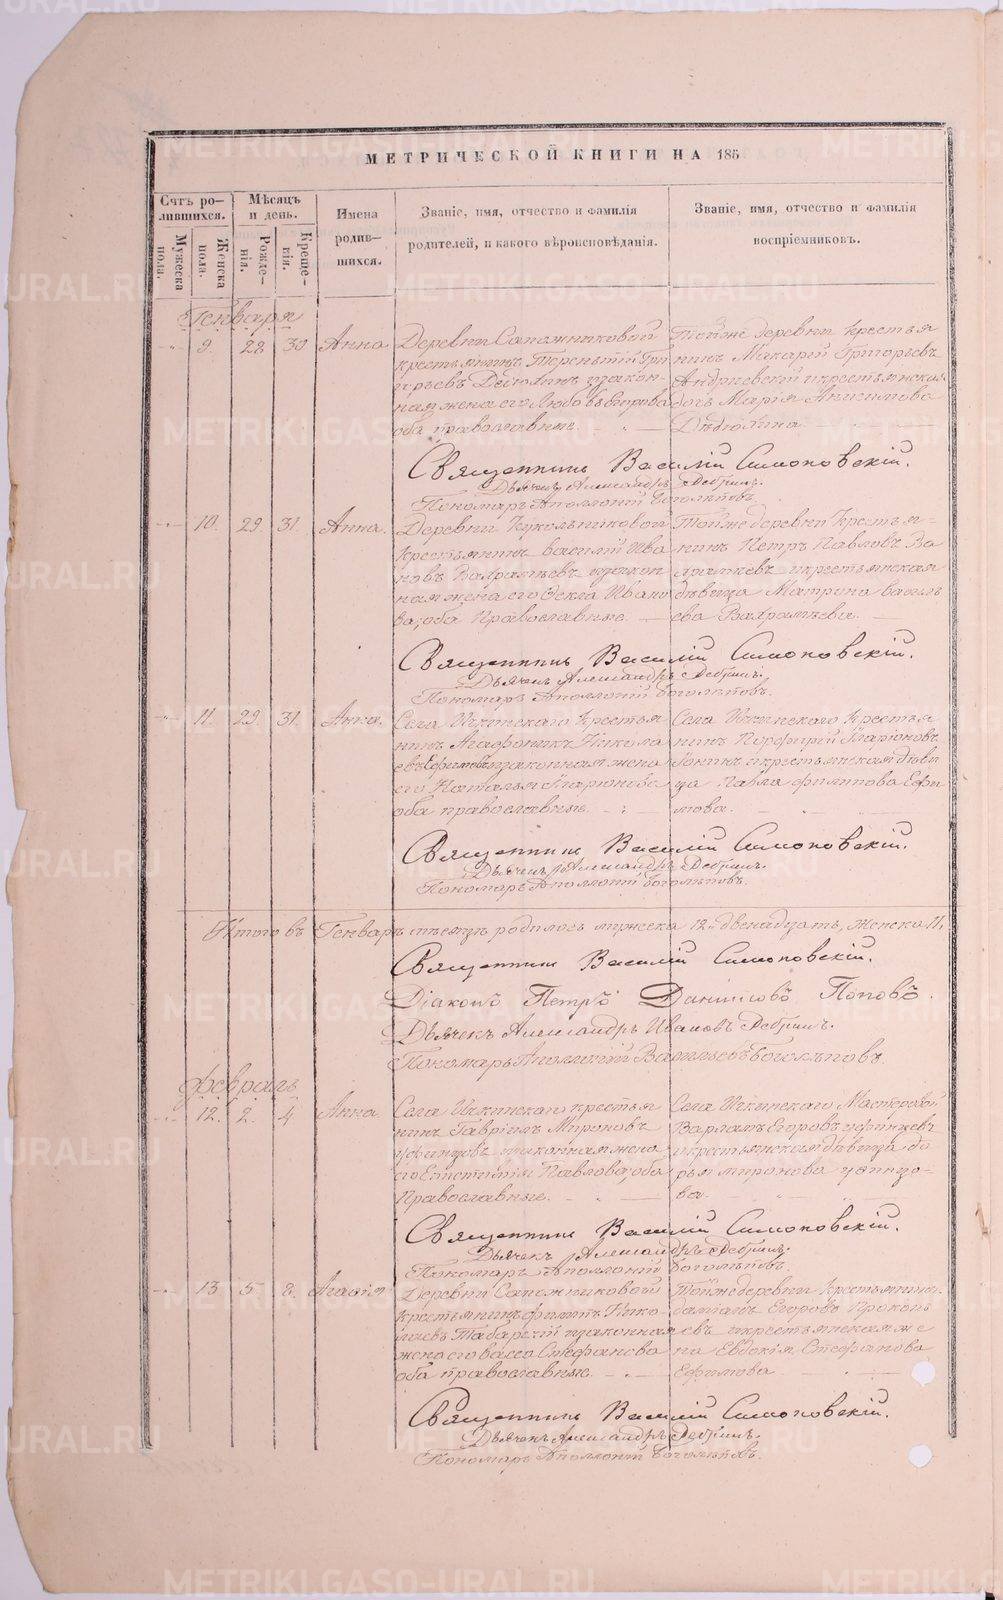 МЕТРИЧЕСКОЙ КНИГИ НА 185
Счтъ ро-
лившихся.
Мѣсяцъ
и день.
Имена
родив-
шихся.
Званіе, имя, отчество и фамилія
родителей, и какого вѣроисповѣданія.
Званіе, имя, отчество и фамилія
воспріемниковъ.
Мужеска
пола.
Женска
пола.
Рожде-
нія.
Креще-
нія.
Генваря
9. 28 30 Анна
Деревни Сапожниковой
крестьянинъ Терентій Гри
горьевъ закон-
ная жена его Любовь Егорова
оба православные.
Тойже деревни крестья
нинъ Макарій Григорьевъ
и крестьянская
дочь Марія Анисимова
Дѣдюлина
Священникъ Василій Симоновскій.
Дьячекъ Александръ
Пономарь Аполлоній Боголѣповъ
10. 29. 31. Анна.
Деревни Кукольниковой
Крестьянинъ Василій Ива
новъ Вахрамѣевъ и закон
ная жена его Ѳекла Ивано
ва, оба Православные.
Тойже деревни Крестья-
нинъ Петръ Павловъ Ва
храмѣевъ и крестьянская
дѣвица Матрина Василь
ева Вахрамѣева.
Священникъ Василій Симоновскій.
Дьячекъ Александръ
Пономарь Аполлоній Боголѣповъ.
11. 29. 31. Анна.
Села Ичкинскаго Крестья
нинъ Агафоникъ Никола
евъ Ефимовъ и законная жена
его Наталья Иларіонова
оба православные
Села Ичкинскаго Крестья
нинъ Порфирій Иларіоновъ
и крестьянская дѣви
ца Павла Филипова Ефи
мова.
Священникъ Василій Симоновскій.
Дьячекъ Александръ
Пономарь Аполлоній Боголѣповъ.
Итого въ Генварѣ мѣсяцѣ родилось мужеска 12. двенадцать, женска 11,
Священникъ Василій Симоновскій.
Діаконъ Петръ Даниловъ Поповъ.
Дьячекъ Александръ Ивановъ
Пономарь Аполлоній Васильевъ Боголѣповъ
Февраль
12. 2. 4 Анна.
Села Ичкинскаго крестья
нинъ Гавріилъ Мироновъ
Уфинцовъ и законная жена
его Епистимія Павлова, оба
Православные.
Села Ичкинскаго Мастеровой
Варламъ Егоровъ Уфинцевъ
и крестьянская дѣвица Да
рья Миронова Уфинцо-
ва.
Священникъ Василій Симоновскій.
Дьячекъ Александръ
Пономарь Аполлоній Боголѣповъ.
13 5. 8. Агаѳія
Деревни Сапожниковой
Крестьянинъ Филипъ Нико-
лаевъ и законная
жена его Васса Стефанова
оба православные
Тойже деревни Крестьянинъ
Даміанъ Егоровъ Прокопь
евъ и крестьянская же
на Евдокія Стефанова
Ефимова
Священникъ Василій Симоновскій.
Дьячекъ Александръ
Пономарь Аполлоній Боголѣповъ.
METRIKI.GASO-URAL.RU